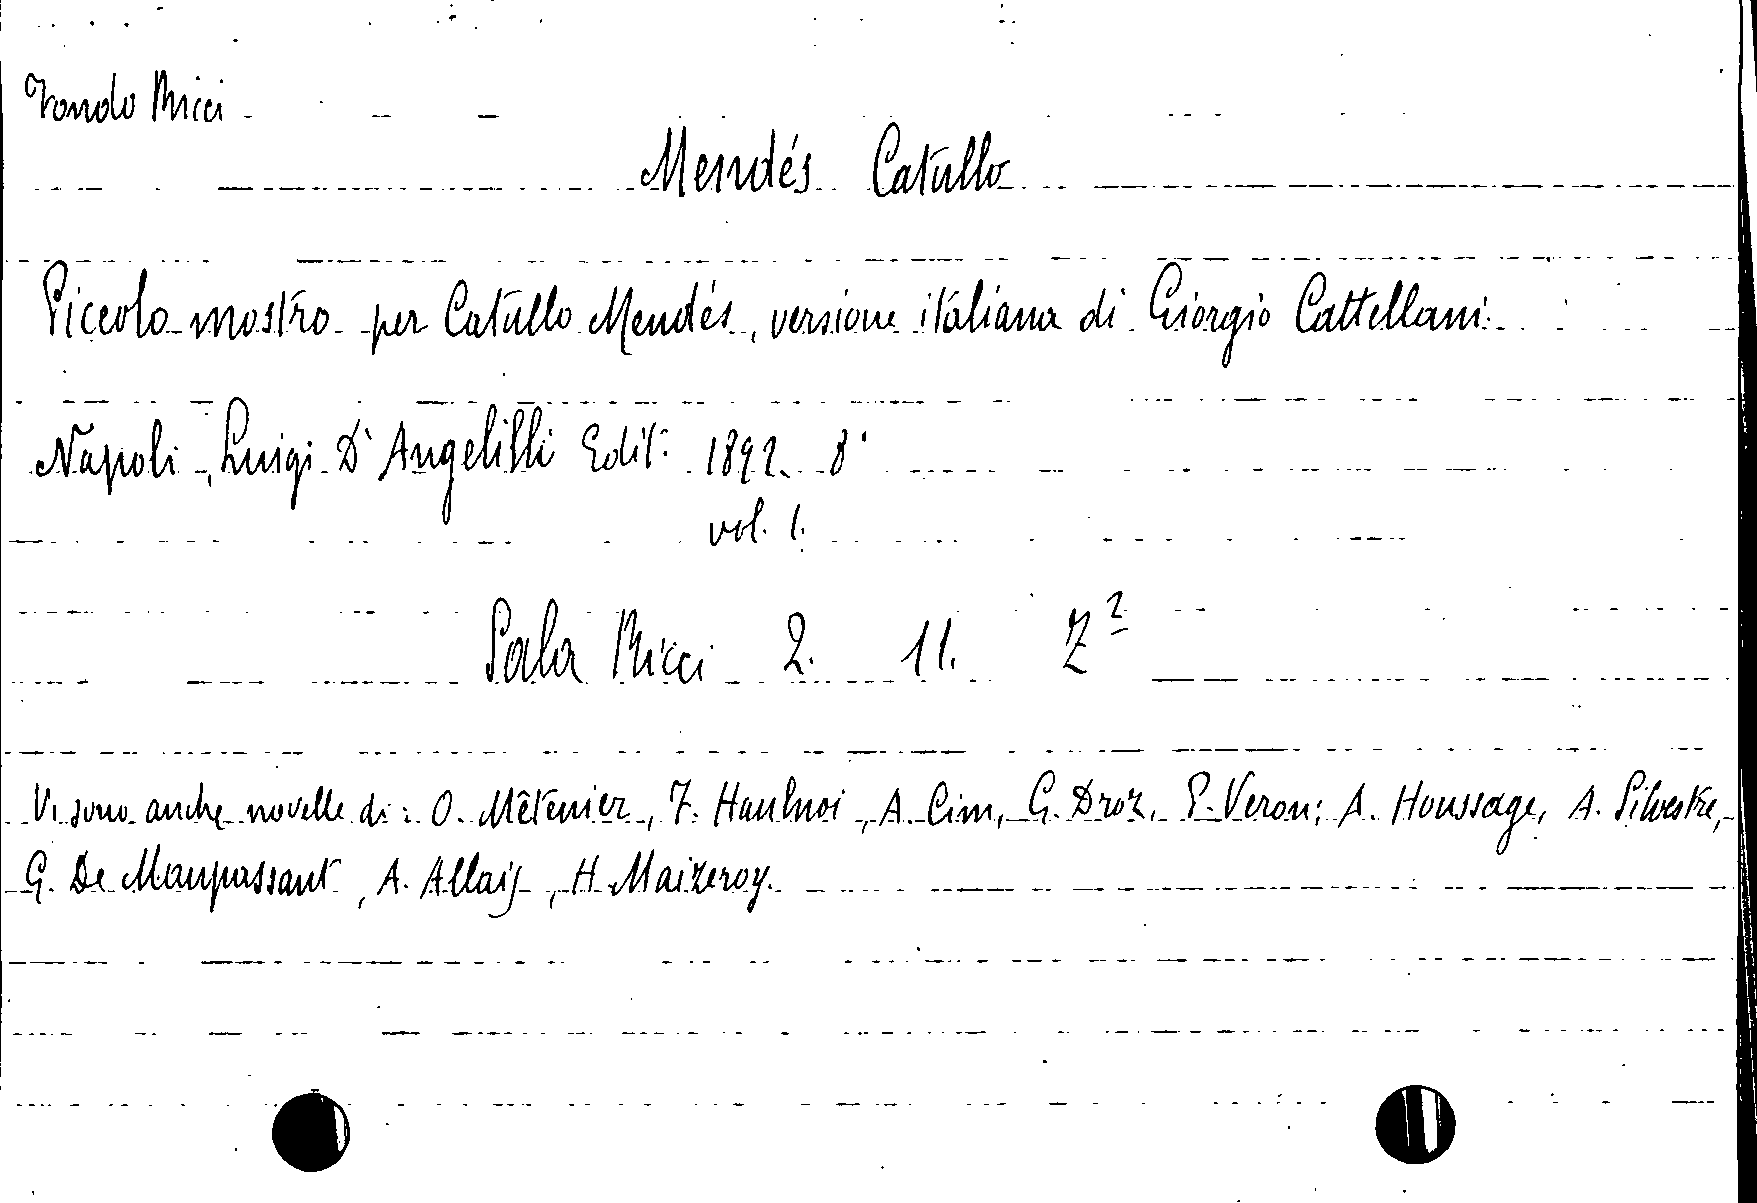 Fondo Ricci
Mendés Catullo
Piccolo mostro per Catullo Mendés, versione italiana di Giorgio Cattellani.
Napoli, Luigi D'Angelilli Edit: 1892. 8°
vol. 1.
Sala Ricci 2. 11. Z²
Vi sono anche novelle di: O. Mêtenier, F. A. Cim, G. Droz, P. Veron; A. Houssage, A. Silvestre,
G. De Maupassant, A. Allais, H. Maizeroy.